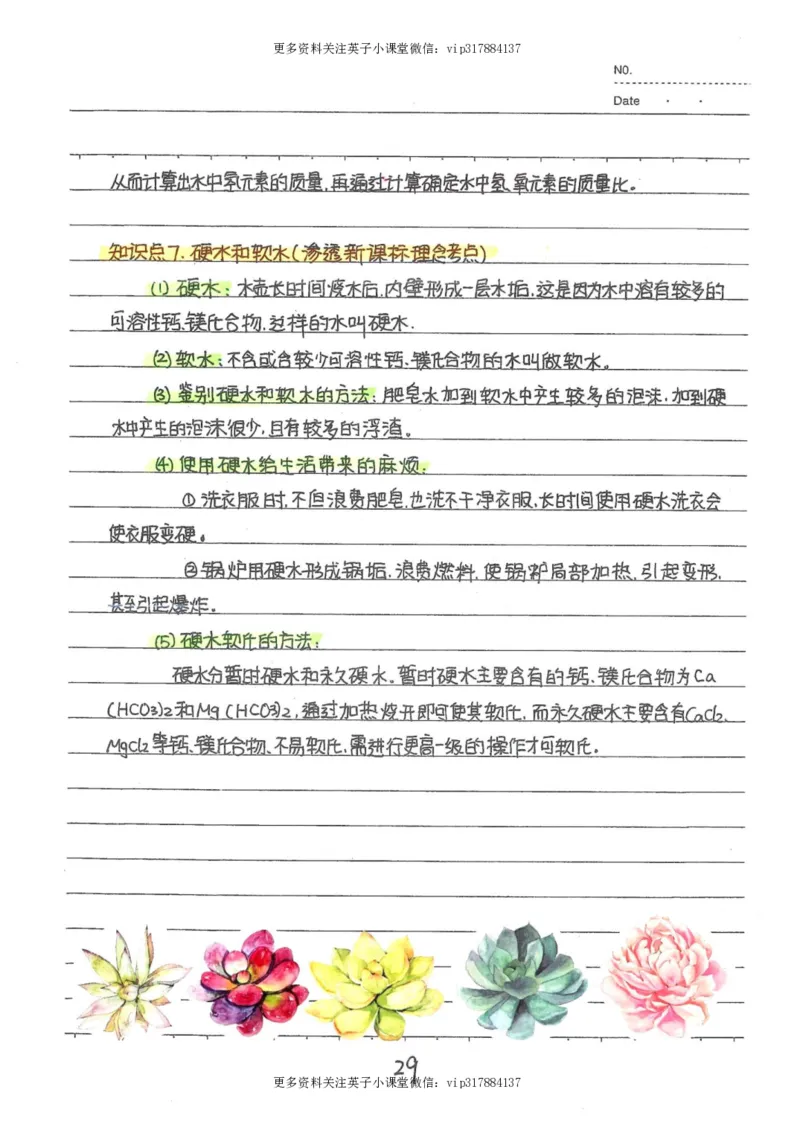 更多资料关注英子小课堂微信：vip317884137
N0.
Date · ·
从而计算出水中氢元素的质量,再通过计算确定水中氢、氧元素的质量比。
知识点7.硬水和软水(渗透新课标理念考点)
(1)硬水:水壶长时间烧水后,内壁形成一层水垢,这是因为水中溶有较多的
可溶性钙、镁化合物,这样的水叫硬水.
(2)软水:不含或含较少可溶性钙、镁化合物的水叫做软水。
(3)鉴别硬水和软水的方法:肥皂水加到软水中产生较多的泡沫,加到硬
水中产生的泡沫很少,且有较多的浮渣。
(4)使用硬水给生活带来的麻烦:
①洗衣服时,不但浪费肥皂,也洗不干净衣服,长时间使用硬水洗衣会
使衣服变硬。
②锅炉用硬水形成锅垢,浪费燃料,使锅炉局部加热,引起变形,
甚至引起爆炸。
(5)硬水软化的方法:
硬水分暂时硬水和永久硬水。暂时硬水主要含有的钙、镁化合物为Ca
(HCO3)2和Mg(HCO3)2,通过加热烧开即可使其软化,而永久硬水主要含有CaCl2、
MgCl2等钙、镁化合物、不易软化,需进行更高一级的操作才可软化。
29
更多资料关注英子小课堂微信：vip317884137